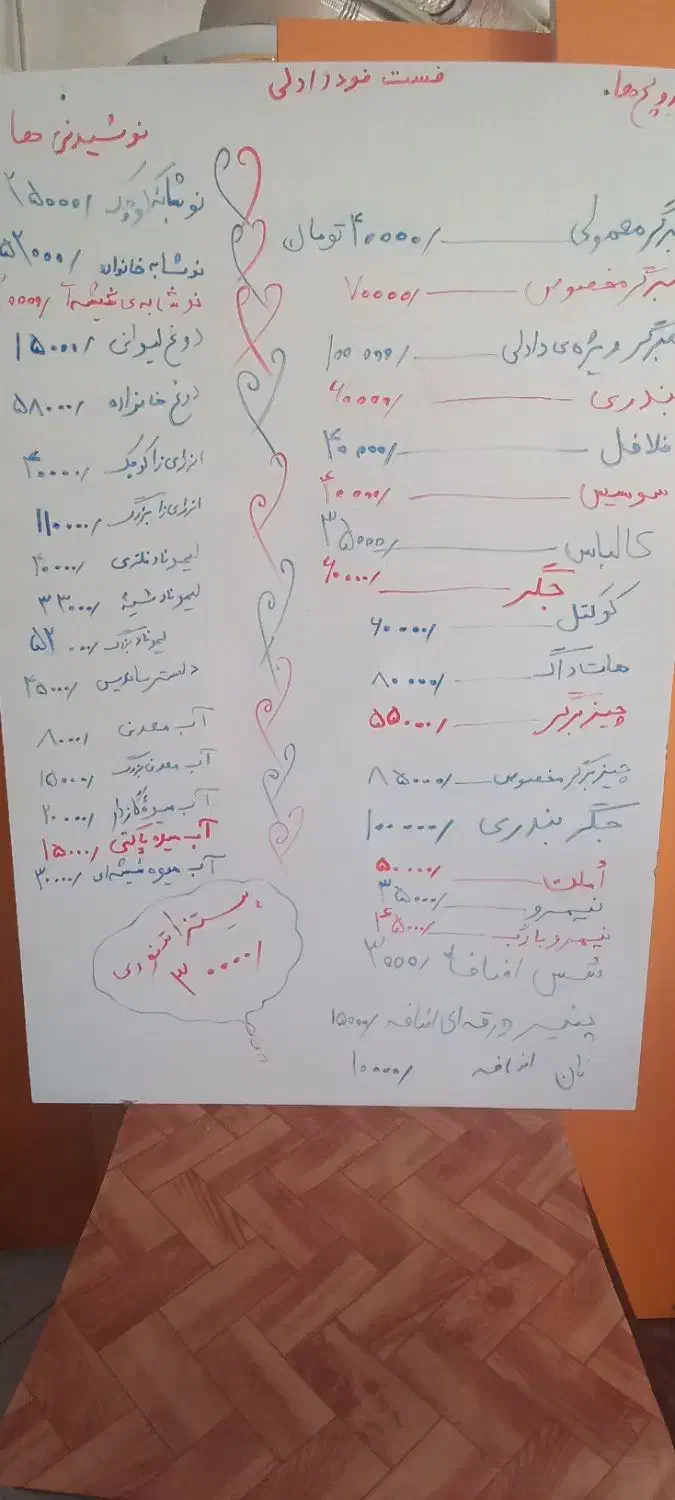 فست فود دادلی
برگر معمولی ۴۰۰۰۰/ تومان
برگر مخصوص ۷۰۰۰۰/
برگر ویژه‌ی دادلی ۱۰۰۰۰۰/
بندری ۶۰۰۰۰/
فلافل ۴۰۰۰۰/
سوسیس ۴۰۰۰۰/
کالباس ۳۵۰۰۰/
جگر ۶۰۰۰۰/
کوکتل ۶۰۰۰۰/
هات داگ ۸۰۰۰۰/
چیز برگر ۵۵۰۰۰/
چیز برگر مخصوص ۸۵۰۰۰/
جگر بندری ۱۰۰۰۰۰/
املت ۵۰۰۰۰/
نیمرو ۳۵۰۰۰/
نیمرو با رب ۴۵۰۰۰/
سس اضافه ۳۰۰۰/
پنیر ورقه‌ای اضافه ۱۵۰۰۰/
نان اضافه ۱۰۰۰۰/
نوشیدنی ها
نوشابه کوچک
نوشابه خانواده
نوشابه‌ی شیشه‌ای
دوغ لیوانی ۱۵۰۰۰/
دوغ خانواده ۵۸۰۰۰/
انرژی زا کوچک ۴۰۰۰۰/
انرژی زا بزرگ ۱۱۰۰۰۰/
لیموناد فلزی ۴۰۰۰۰/
لیموناد شیشه ۳۳۰۰۰/
لیموناد بزرگ ۵۲۰۰۰/
دلستر ساندیس ۴۵۰۰۰/
آب معدنی ۸۰۰۰/
آب معدنی بزرگ ۱۵۰۰۰/
آب میوه گازدار ۲۰۰۰۰/
آب میوه پاکتی ۱۵۰۰۰/
آب میوه شیشه‌ای ۳۰۰۰۰/
پیتزا تنوری
۳۰۰۰۰/